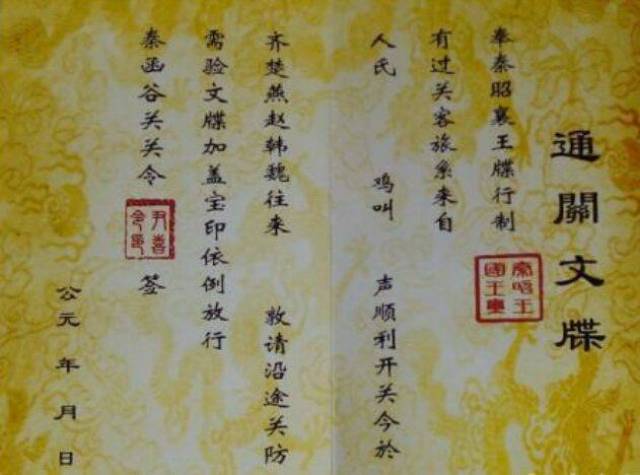 通關文牒
奉秦昭襄王牒行制
秦昭王
有过关客旅系来自
人民 鸡叫 声顺利开关今於
齐楚燕赵韩魏往来 敦请沿途关防
需验文牒加盖宝印依例放行
秦函谷关关令 签
尹喜
公元 年 月 日